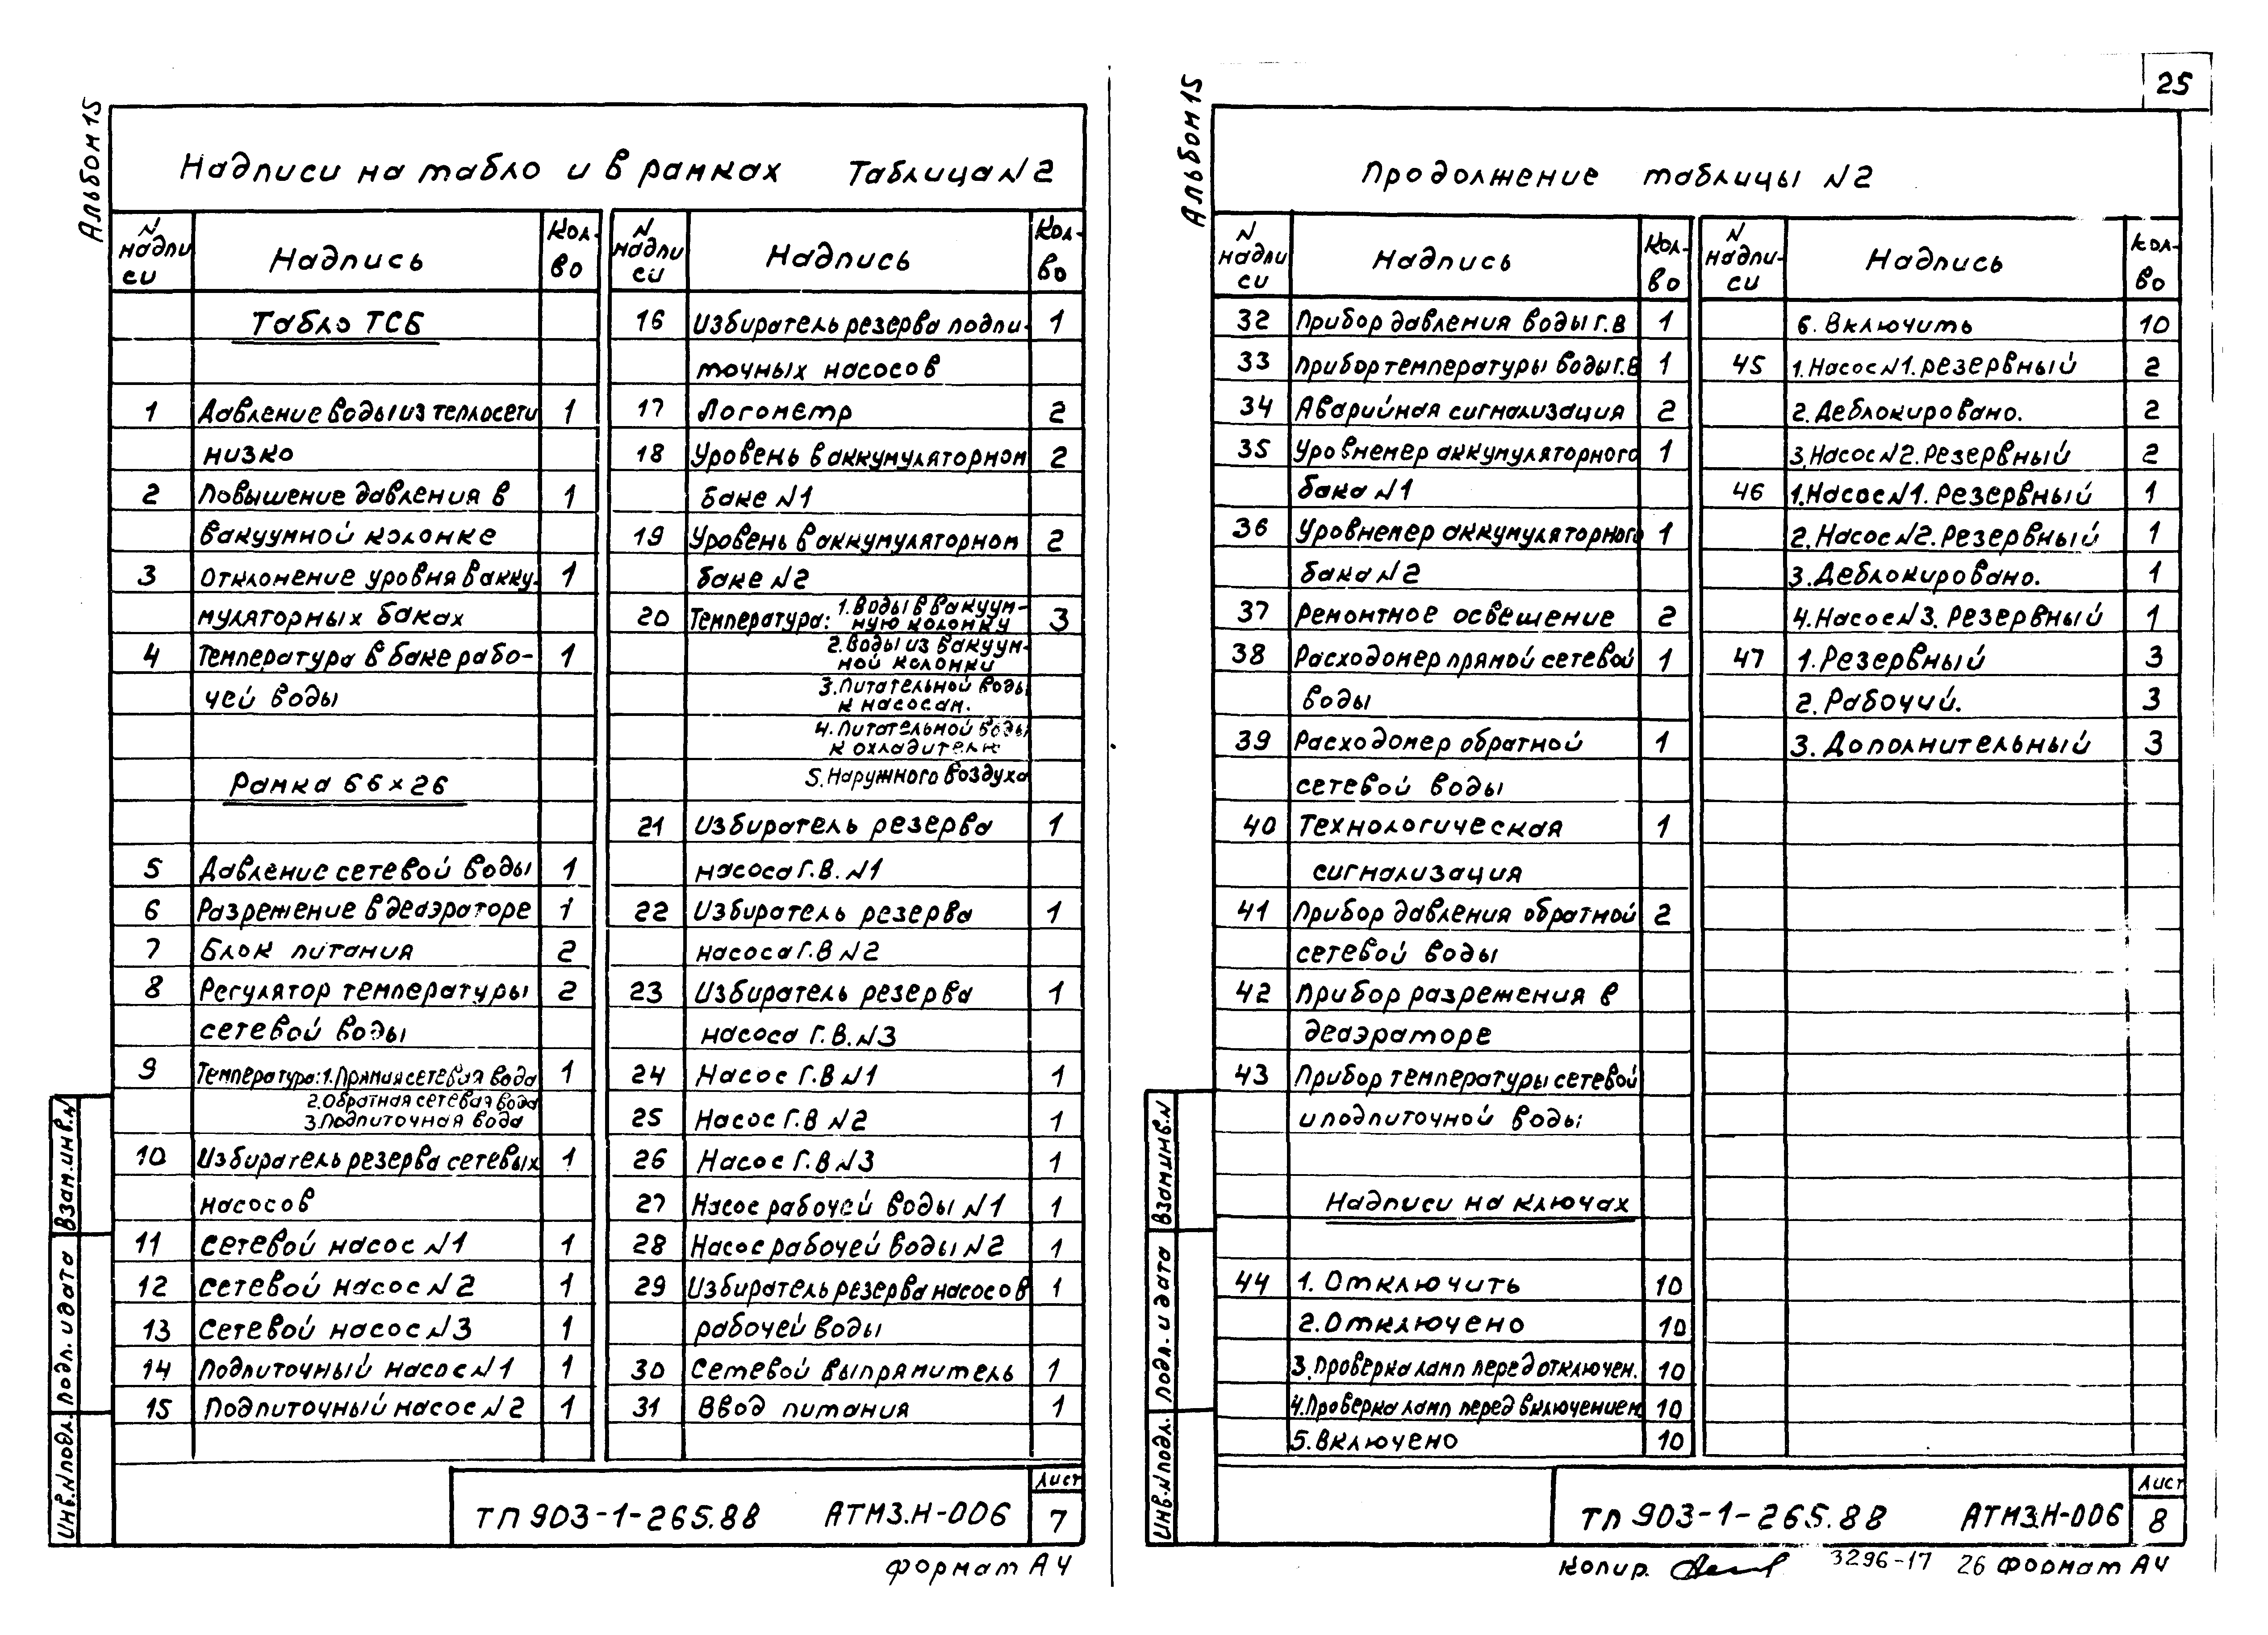 Альбом 15
Надписи на табло и в рамках Таблица N2
N надписи Надпись Кол-во
Табло ТСБ
1 Давление воды из теплосети 1
низко
2 Повышение давления в 1
вакуумной колонке
3 Отклонение уровня в акку- 1
муляторных баках
4 Температура в баке рабо- 1
чей воды
Рамка 66×26
5 Давление сетевой воды 1
6 Разрежение в деаэраторе 1
7 Блок питания 2
8 Регулятор температуры 2
сетевой воды
9 Температура: 1. Прямая сетевая вода 1
2. Обратная сетевая вода
3. Подпиточная вода
10 Избиратель резерва сетевых 1
насосов
11 Сетевой насос N1 1
12 Сетевой насос N2 1
13 Сетевой насос N3 1
14 Подпиточный насос N1 1
15 Подпиточный насос N2 1
N надписи Надпись Кол-во
16 Избиратель резерва подпи- 1
точных насосов
17 Логометр 2
18 Уровень в аккумуляторном 2
баке N1
19 Уровень в аккумуляторном 2
баке N2
20 Температура: 1. Воды в вакуум- 3
ную колонку
2. Воды из вакуум-
ной колонки
3. Питательной воды
к насосам.
4. Питательной воды
к охладителю
5. Наружного воздуха
21 Избиратель резерва 1
насоса Г.В. N1
22 Избиратель резерва 1
насоса Г.В N2
23 Избиратель резерва 1
насоса Г.В. N3
24 Насос Г.В N1 1
25 Насос Г.В N2 1
26 Насос Г.В N3 1
27 Насос рабочей воды N1 1
28 Насос рабочей воды N2 1
29 Избиратель резерва насосов 1
рабочей воды
30 Сетевой выпрямитель 1
31 Ввод питания 1
Взам.инв.N
Подп. и дата
Инв.N подл.
ТП 903-1-265.88 АТМ3.Н-006 Лист 7
Формат А4
25
Альбом 15
Продолжение таблицы N2
N надписи Надпись Кол-во
32 Прибор давления воды Г.В 1
33 Прибор температуры воды Г.В 1
34 Аварийная сигнализация 2
35 Уровнемер аккумуляторного 1
бака N1
36 Уровнемер аккумуляторного 1
бака N2
37 Ремонтное освещение 2
38 Расходомер прямой сетевой 1
воды
39 Расходомер обратной 1
сетевой воды
40 Технологическая 1
сигнализация
41 Прибор давления обратной 2
сетевой воды
42 Прибор разрежения в
деаэраторе
43 Прибор температуры сетевой
и подпиточной воды
Надписи на ключах
44 1. Отключить 10
2. Отключено 10
3. Проверка ламп перед отключен. 10
4. Проверка ламп перед включением 10
5. Включено 10
N надпи-си Надпись Кол-во
6. Включить 10
45 1. Насос N1. Резервный 2
2. Деблокировано. 2
3. Насос N2. Резервный 2
46 1. Насос N1. Резервный 1
2. Насос N2. Резервный 1
3. Деблокировано. 1
4. Насос N3. Резервный 1
47 1. Резервный 3
2. Рабочий. 3
3. Дополнительный 3
Взам.инв.N
Подп. и дата
Инв.N подл.
ТП 903-1-265.88 АТМ3.Н-006 Лист 8
Копир. 3296-17 26 Формат А4